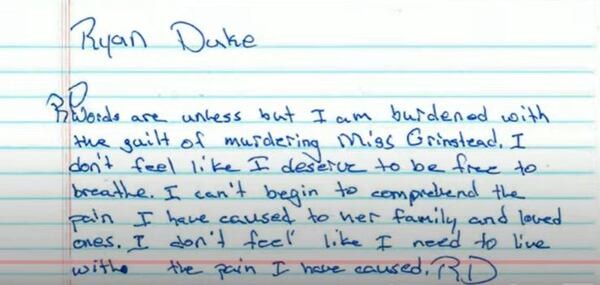 Ryan Duke
RD Words are unless but I am burdened with
the guilt of murdering Miss Grinstead. I
don't feel like I deserve to be free to
breathe. I can't begin to comprehend the
pain I have caused to her family and loved
ones. I don't feel like I need to live
with the pain I have caused. RD